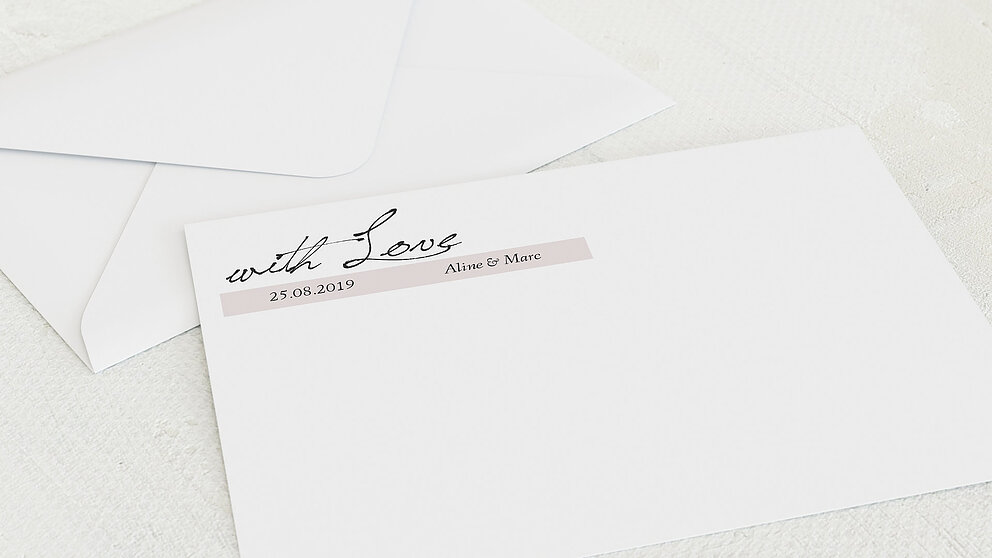 with Love
25.08.2019 Aline & Marc